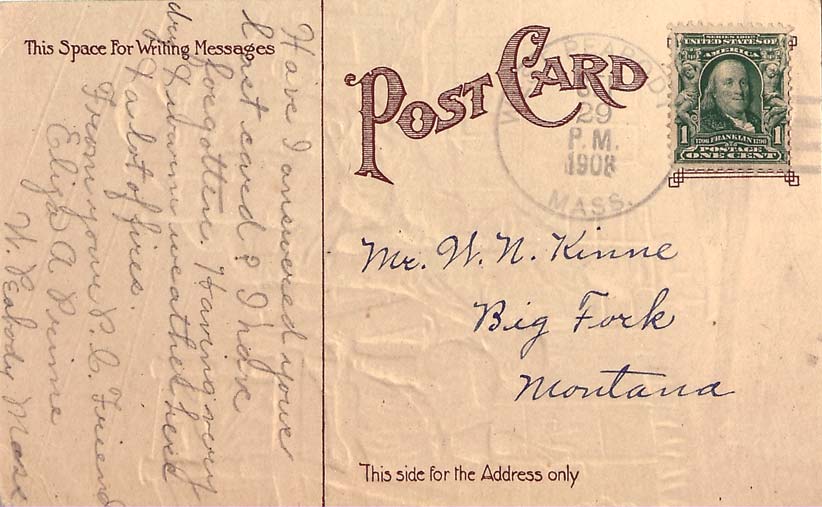 This Space For Writing Messages
Have I answered your
last card? I have
forgotten. Having very
dry & warm weather here
& a lot of fires.
From your P. C. Friend
Eliza A Prime
W. Peabody Mass
POST CARD
W PEABODY
29
P.M.
1908
MASS.
SERIES 1902
UNITED STATES OF
AMERICA
1 1
1706 FRANKLIN 1790
POSTAGE
ONE CENT
Mr. W. N. Kinne
Big Fork
Montana
This side for the Address only